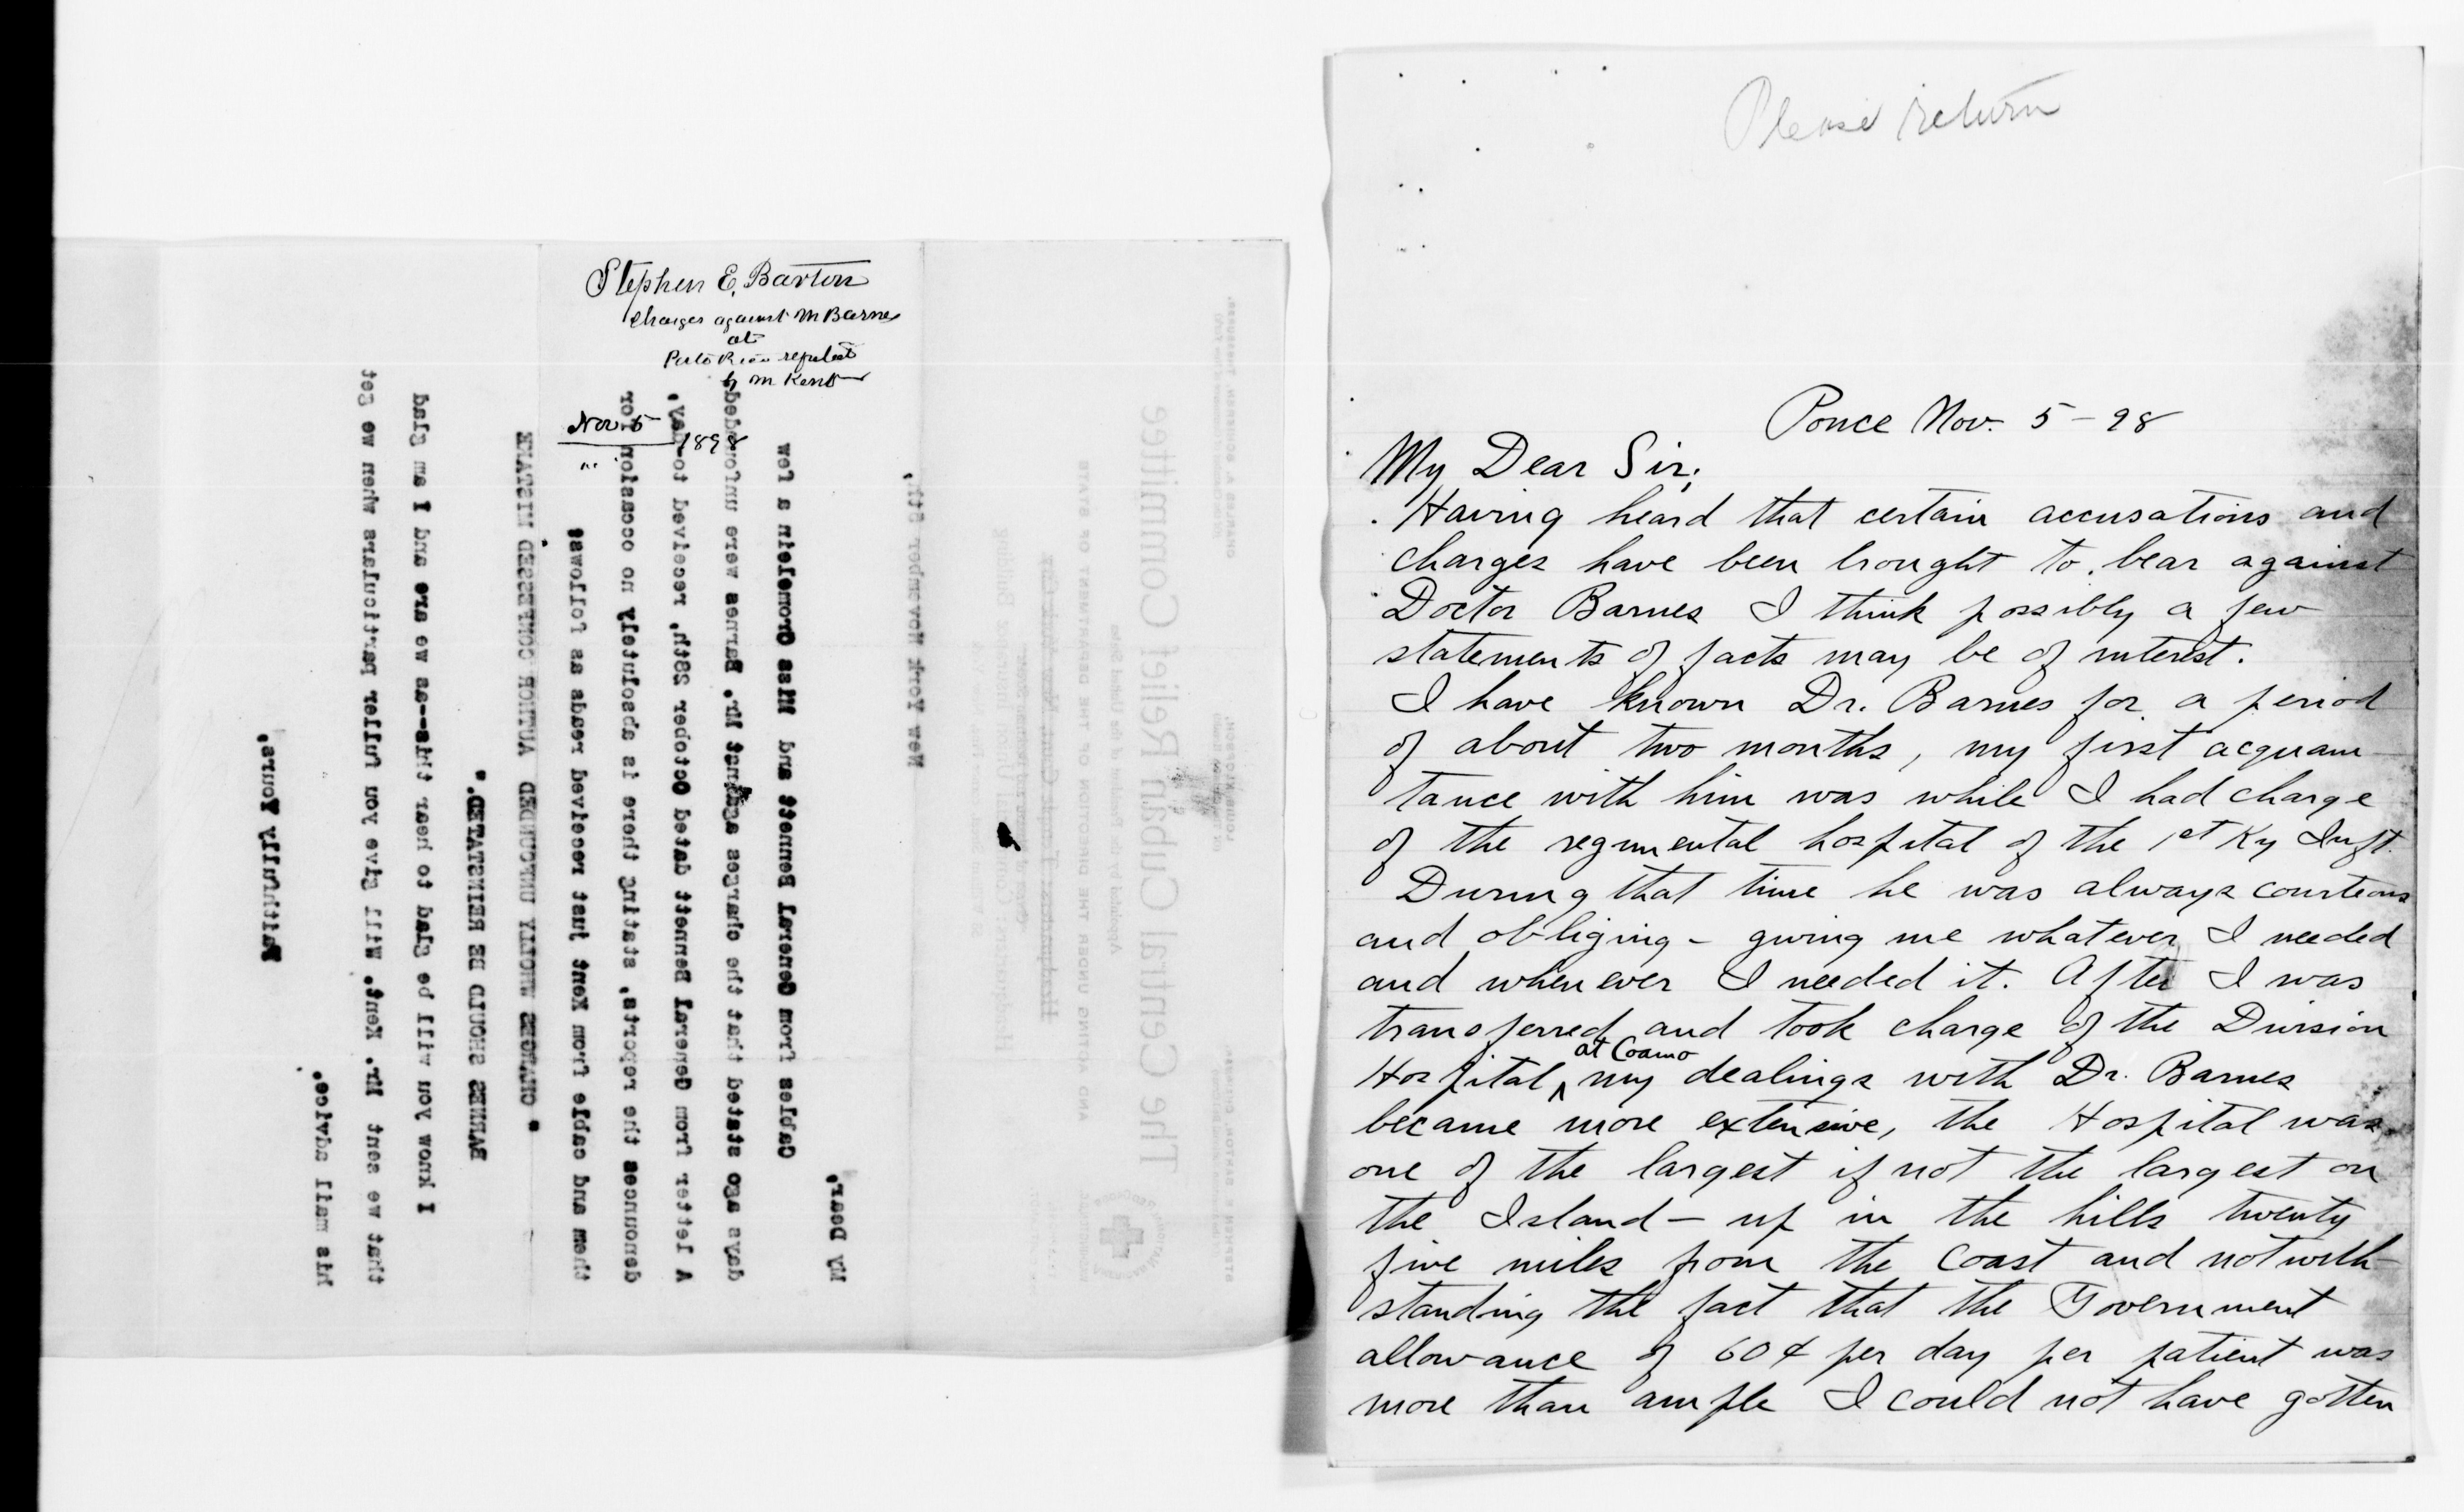 Stephen E. Barton
Charges against M Barnes
at
Porto Rico refuted
by M Kent
Nov. 5
1898
The Central Cuban Relief Committee
AND ACTING UNDER THE DIRECTION OF THE DEPARTMENT OF STATE
New York November 5th,
My Dear,
Cables from General Bennett and Miss Cromelein a few
days ago stated that the charges against Mr. Barnes were unfounded.
A letter from General Bennett dated October 28th, received to-day,
denounces the reports, stating there is absolutely no occasion for
them and cable from Kent just received reads as follows:
" CHARGES WHOLLY UNFOUNDED AUTHOR CONFESSED MISTAKE
BARNES SHOULD BE REINSTATED."
I know you will be glad to hear this--as we are and I am glad
that we sent Mr. Kent. Will give you fuller particulars when we get
his mail advice.
Faithfully Yours,
Please return
Ponce Nov. 5 - 98
My Dear Sir;
Having heard that certain accusations and
charges have been brought to bear against
Doctor Barnes I think possibly a few
statements of facts may be of interest.
I have known Dr. Barnes for a period
of about two months, my first acquain-
tance with him was while I had charge
of the regimental hospital of the 1st Ky Inft.
During that time he was always courteous
and obliging - giving me whatever I needed
and whenever I needed it. After I was
transferred and took charge of the Division
Hospital at Coamo my dealings with Dr. Barnes
became more extensive, the Hospital was
one of the largest if not the largest on
the Island - up in the hills twenty
five miles from the coast and notwith-
standing the fact that the Government
allowance of 60¢ per day per patient was
more than ample I could not have gotten